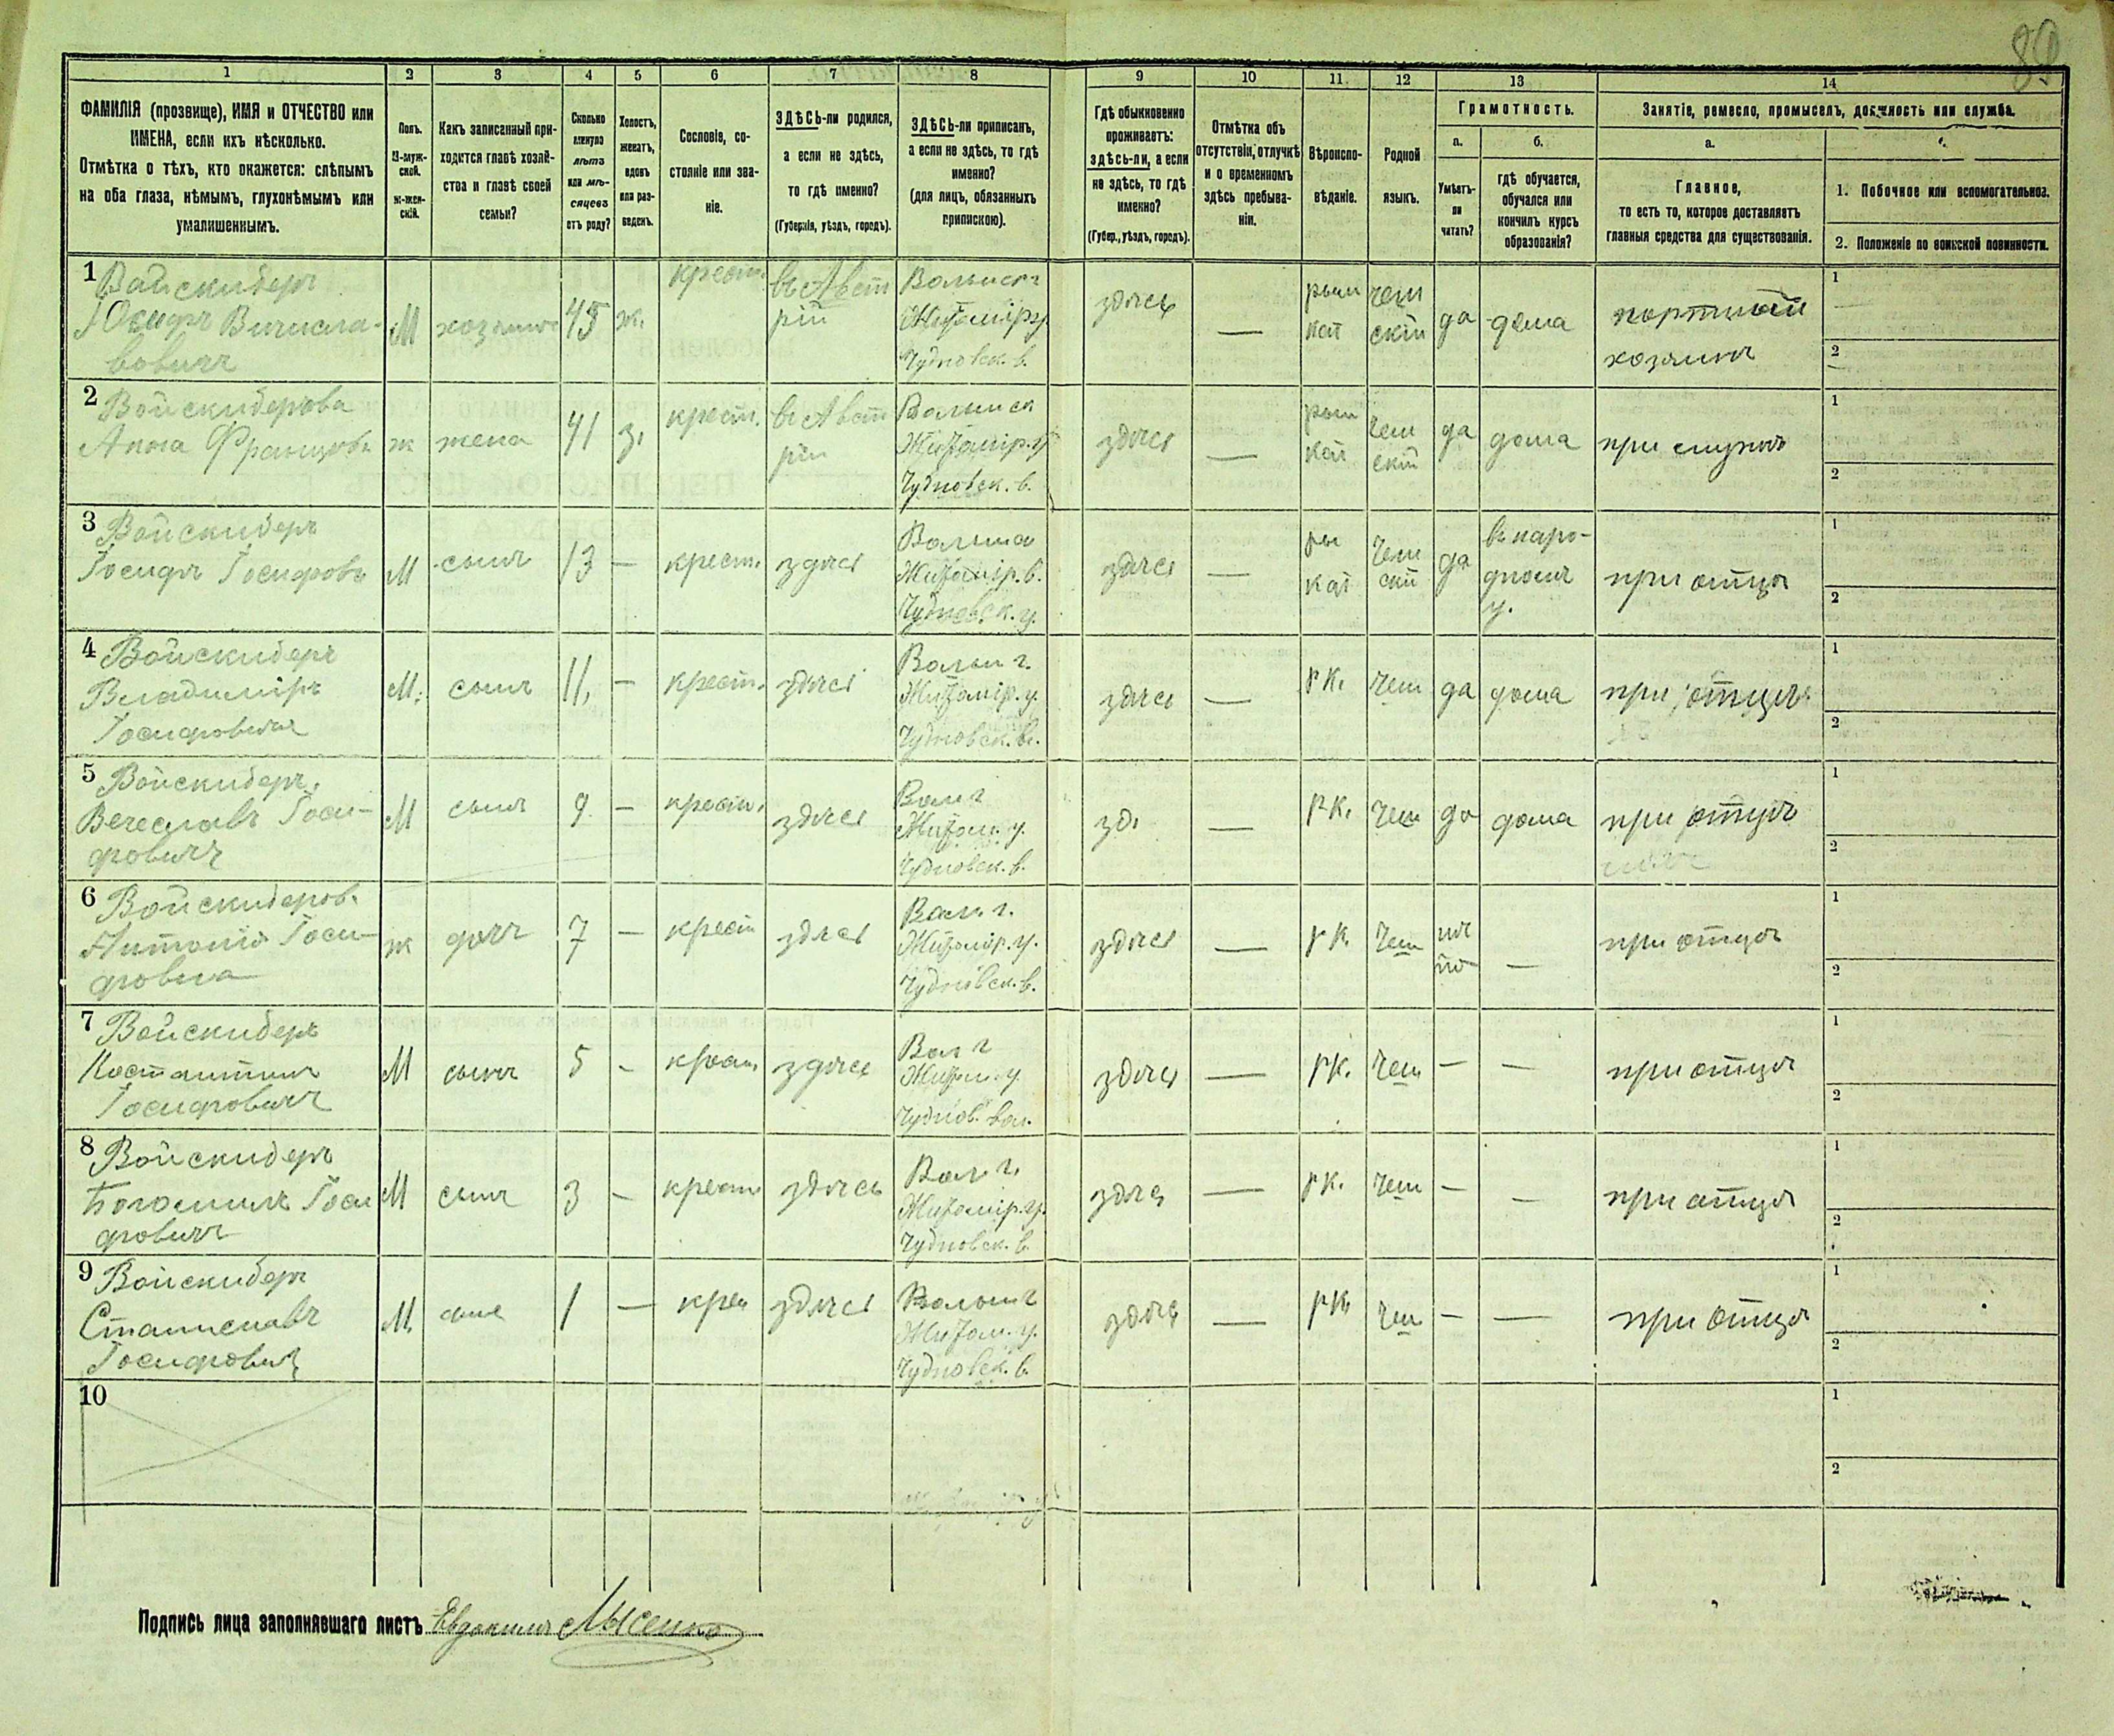 89
1
2
3
4
5
6
7
8
9
10
11
12
13
14
ФАМИЛІЯ (прозвище), ИМЯ и ОТЧЕСТВО или
ИМЕНА, если ихъ нѣсколько.
Отмѣтка о тѣхъ, кто окажется: слѣпымъ
на оба глаза, нѣмымъ, глухонѣмымъ или
умалишеннымъ.
Полъ.
М-муж-
ской.
ж-жен-
скій.
Какъ записанный при-
ходится главѣ хозяй-
ства и главѣ своей
семьи?
Сколько
минуло
лѣтъ
или мѣ-
сяцевъ
отъ роду?
Холостъ,
женатъ,
вдовъ
или раз-
веденъ.
Сословіе, со-
стояніе или зва-
ніе.
ЗДѢСЬ-ли родился,
а если не здѣсь,
то гдѣ именно?
(Губернія, уѣздъ, городъ).
ЗДѢСЬ-ли приписанъ,
а если не здѣсь, то гдѣ
именно?
(для лицъ, обязанныхъ
припискою).
Гдѣ обыкновенно
проживаетъ:
здѣсь-ли, а если
не здѣсь, то гдѣ
именно?
(Губер., уѣздъ, городъ).
Отмѣтка объ
отсутствіи, отлучкѣ
и о временномъ
здѣсь пребыва-
ніи.
Вѣроиспо-
вѣданіе.
Родной
языкъ.
Грамотность.
а.
Умѣетъ-
ли
читать?
б.
гдѣ обучается,
обучался или
кончилъ курсъ
образованія?
Занятіе, ремесло, промыселъ, должность или служба.
а.
Главное,
то есть то, которое доставляетъ
главныя средства для существованія.
1. Побочное или вспомогательное.
2. Положеніе по воинской повинности.
1
Войскидеръ
Іосифъ Вичесла-
вовичъ
М
хозяинъ
45
ж.
крест.
въ Авст
ріи
Волынск г
Житомір у
Чудновск. в.
здѣсь
—
рым
кат
чеш
скій
да
дома
портной
хозяинъ
1
2
2
Войскидерова
Анна Францовн
ж
жена
41
з.
крест.
въ Авст
ріи
Волынск
Житомір. у
Чудновск. в.
здѣсь
—
рым
кат
чеш
скій
да
дома
при мужѣ
1
2
3
Войскидеръ
Іосифъ Іосифовъ
М
сынъ
13
—
крест.
здѣсь
Житомір. в.
Чудновск. у.
здѣсь
—
ры
кат
чеш
скій
да
въ наро-
дномъ
у.
при отцѣ
1
2
4
Войскидеръ
Владиміръ
Іосифовичъ
М.
сынъ
11,
—
крест.
здѣсь
Волын г.
Житомір. у.
Чудновск. в.
здѣсь
—
р к.
чеш
да
дома
при отцѣ
1
2
5
Войскидеръ
Вечеславъ Іоси-
фовичъ
М
сынъ
9
—
крест.
здѣсь
Вол г
Житом. у.
Чудновск. в.
зд.
—
р к.
чеш
да
дома
при отцѣ
1
2
6
Войскидеров.
Антонія Іоси-
фовна
ж
дочь
7
—
крест
здѣсь
Вол. г.
Житомір. у.
Чудновск. в.
здѣсь
—
р к.
чеш
нѣ
тъ
—
при отцѣ
1
2
7
Войскидеръ
Костантинъ
Іосифовичъ
М
сынъ
5
-
крест.
здѣсь
Вол г
Житом. у
Чуднов. вол.
здѣсь
—
р к.
чеш
—
—
при отцѣ
1
2
8
Войскидеръ
Богомилъ Іоси
фовичъ
М
сынъ
3
—
крест
здѣсь
Вол г.
Житомір. у.
Чудновск. в.
здѣсь
—
р к.
чеш
—
—
при отцѣ
1
2
9
Войскидеръ
Станиславъ
Іосифовичъ
М.
сынъ
1
—
крес
здѣсь
Волын г
Житом. у.
Чудновск. в.
здѣсь
—
р к.
чеш
—
—
при отцѣ
1
2
10
1
2
Подпись лица заполнявшаго листъ Евдокимъ Лысенко